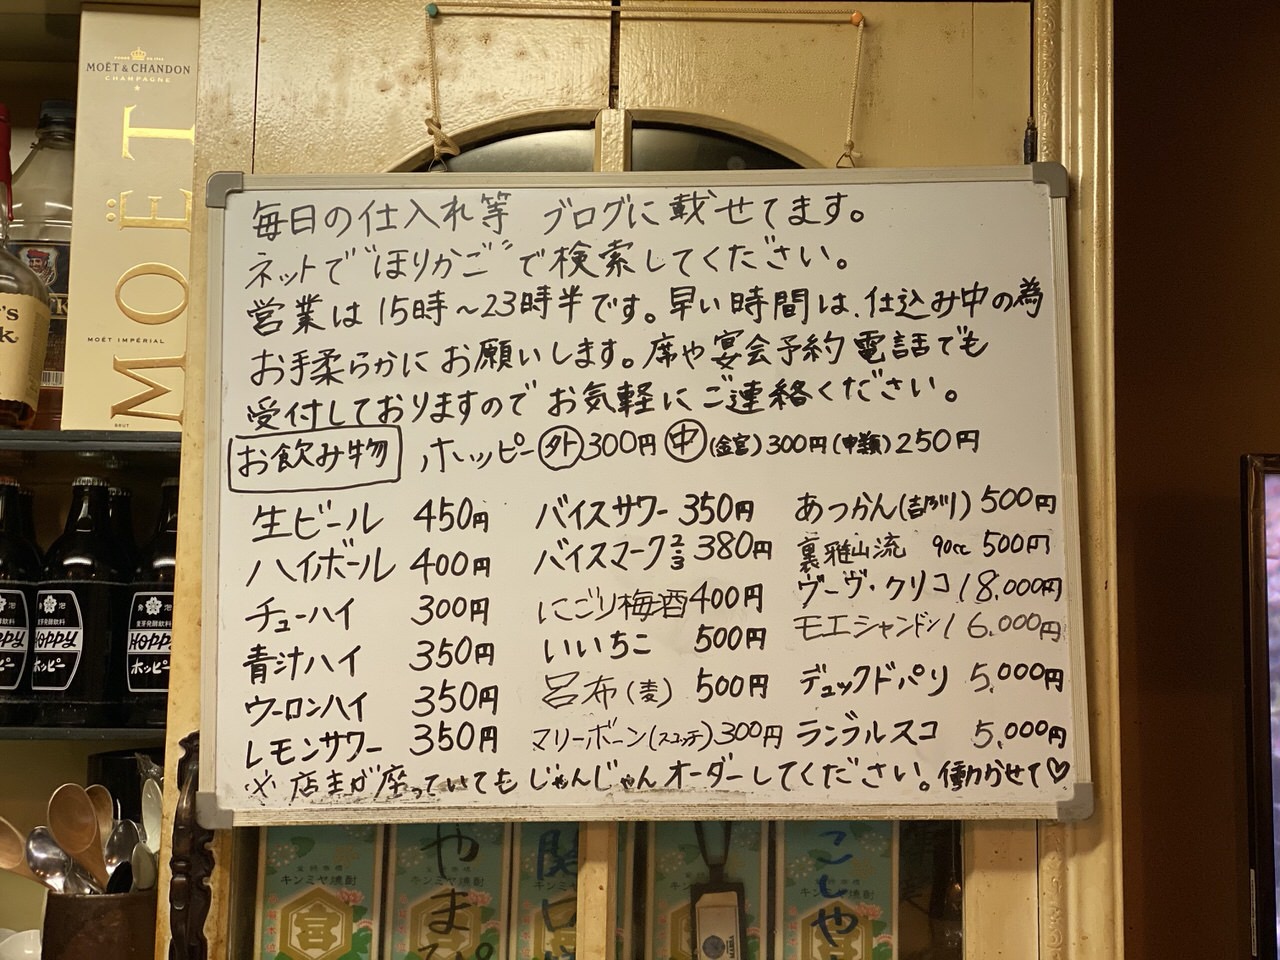 MOËT & CHANDON
CHAMPAGNE
MOËT
MOËT IMPÉRIAL
BRUT
毎日の仕入れ等 ブログに載せてます。
ネットで“ほりかご”で検索してください。
営業は15時~23時半です。早い時間は、仕込み中の為
お手柔らかにお願いします。席や宴会予約電話でも
受付しておりますのでお気軽にご連絡ください。
お飲み物 ホッピー 外300円 中(金宮)300円(甲類)250円
生ビール 450円 バイスサワー 350円 あつかん 500円
ハイボール 400円 バイスマーク2-3 380円 裏雅山流 90cc 500円
チューハイ 300円 にごり梅酒 400円 ヴーヴ・クリコ 18,000円
青汁ハイ 350円 いいちこ 500円 モエシャンドン 16,000円
ウーロンハイ 350円 呂布(麦) 500円 デュックドパリ 5,000円
レモンサワー 350円 マリーボーン(スコッチ)300円 ランブルスコ 5,000円
※店主が座っていてもじゃんじゃんオーダーしてください。働かせて♡
HOPPY
ホッピー
HOPPY
ホッピー
キンミヤ焼酎
キンミヤ焼酎
宮
やまぴ
関口
こしや